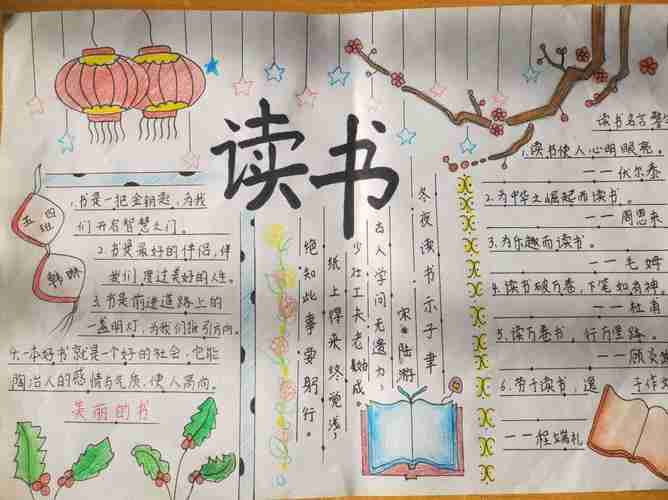 读书
五四班
韩琳
1.书是一把金钥匙，为我
们开启智慧之门。
2.书是最好的伴侣，伴
我们度过美好的人生。
3.书是前进道路上的
一盏明灯，为我们指引方向。
4.一本好书就是一个好的社会，它能
陶冶人的感情与气质，使人高尚。
美丽的书
冬夜读书示子聿
宋•陆游
古人学问无遗力，
少壮工夫老始成。
纸上得来终觉浅，
绝知此事要躬行。
读书名言警
1.读书使人心明眼亮。
——伏尔泰
2.为中华之崛起而读书。
——周恩来
3.为乐趣而读书。
——毛姆
4.读书破万卷，下笔如有神。
——杜甫
5.读万卷书，行万里路。
——顾炎
6.劳于读书，逸于作文
——程端礼